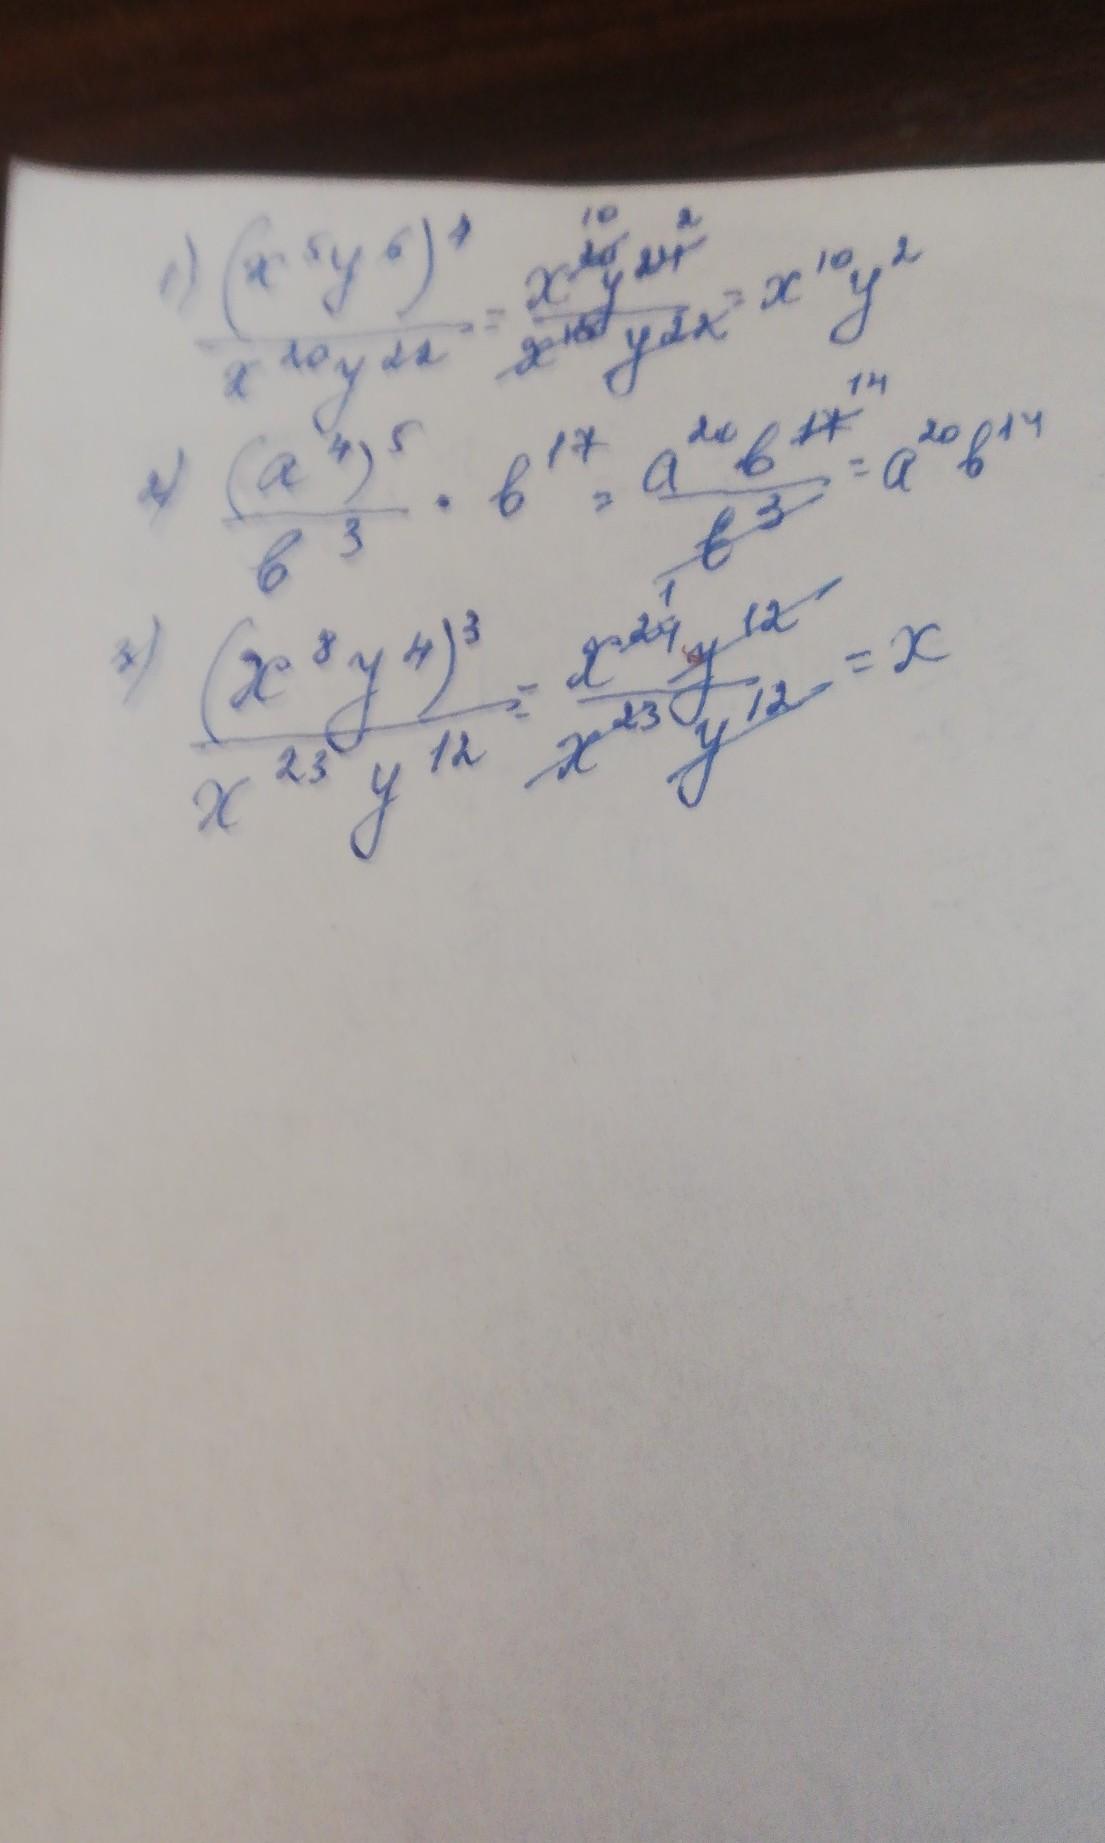 1) (x⁵y⁶)⁴ / x¹⁰y²² = x²⁰y²⁴ / x¹⁰y²² = x¹⁰y²
2) (a⁴)⁵ / b³ · b¹⁷ = a²⁰b¹⁷ / b³ = a²⁰b¹⁴
3) (x⁸y⁴)³ / x²³y¹² = x²⁴y¹² / x²³y¹² = x